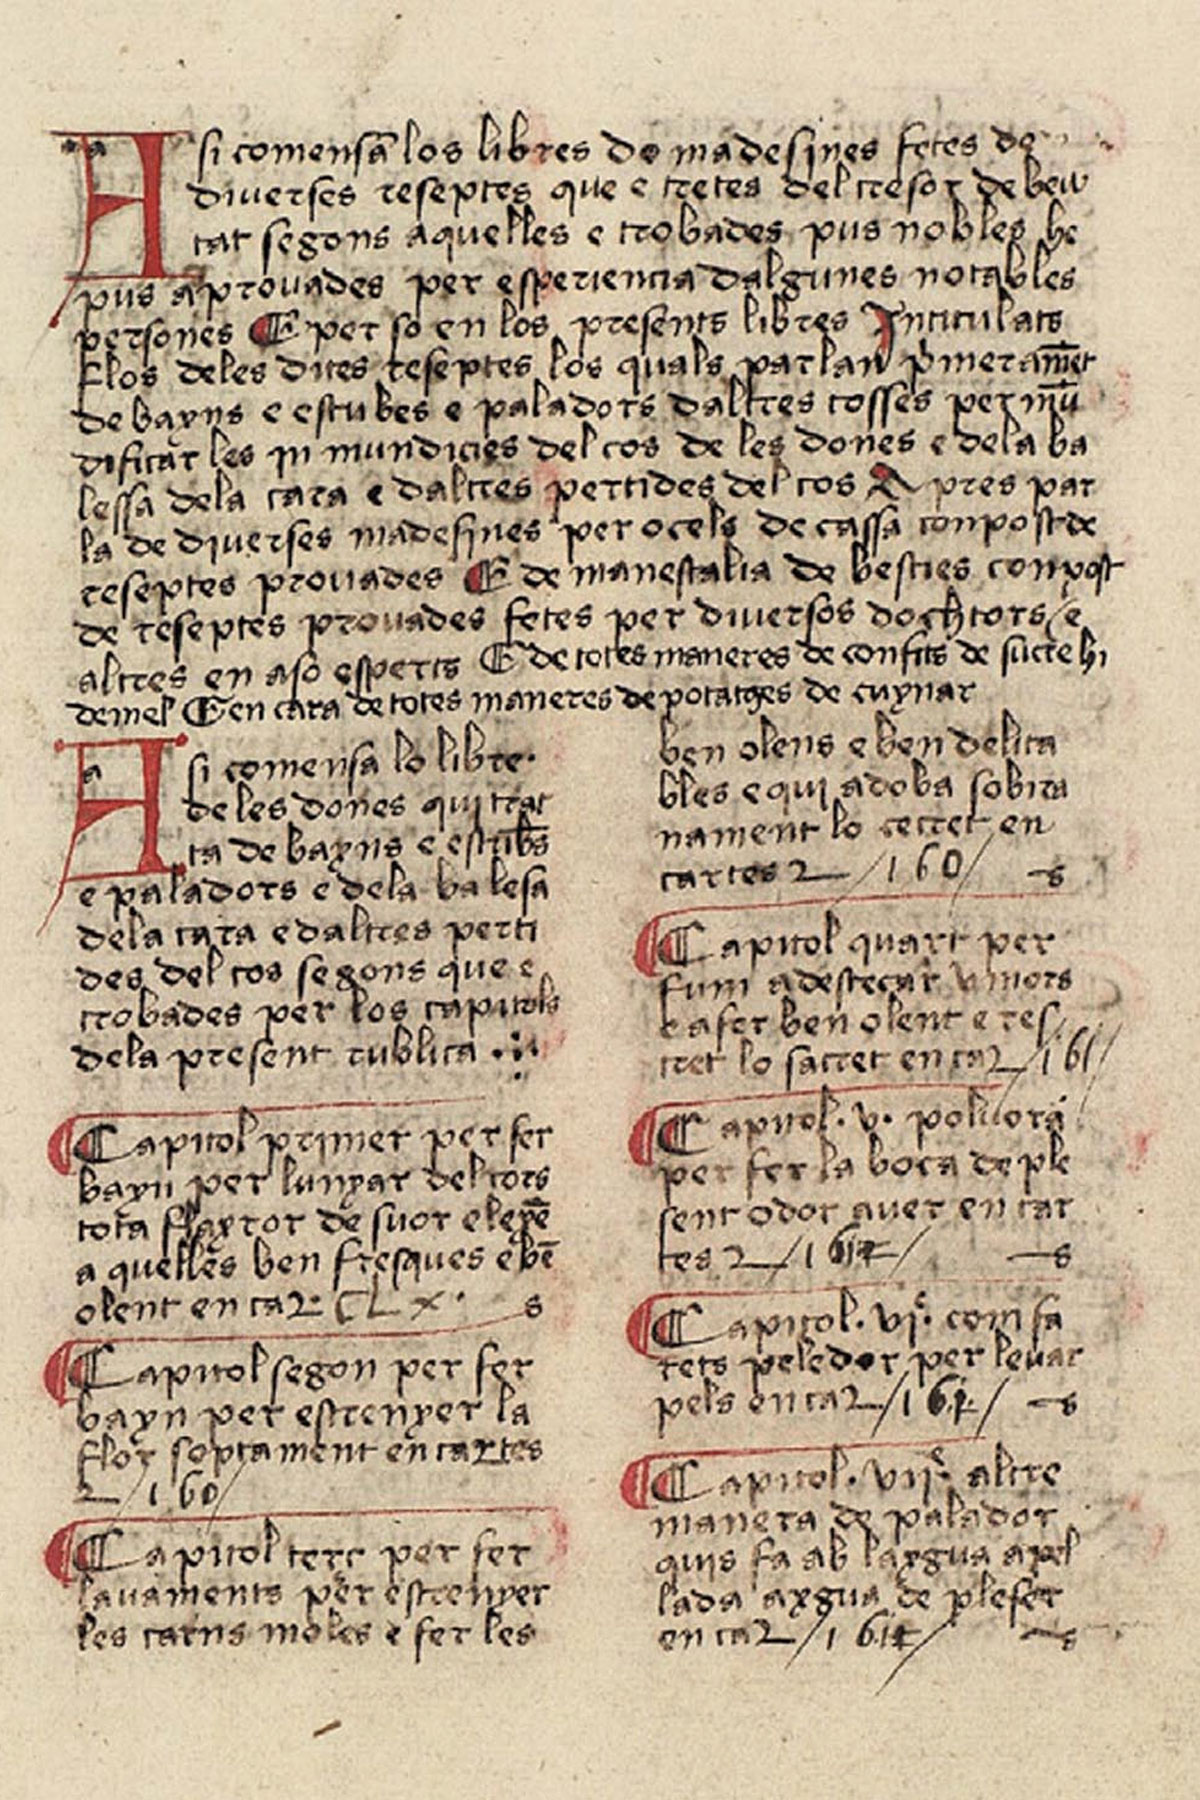 Asi comensa los libres de madesines fetes de
diverses reseptes que e tretes del tresor de beu
tat segons aquelles e trobades pus nobles he
pus aprouades per esperiencia dalgunes notables
persones E per so en los presents libres Intitulats
Flos deles dites reseptes los quals parlan primerament
de bayns e estubes e paladors daltres cosses per mu
dificar les inmundicies del cos de les dones e dela ba
lessa dela cara e daltres pertides del cos Apres par
la de diverses madesines per ocels de cassa conpost de
reseptes prouades E de manescalia de besties conpost
de reseptes prouades fetes per diversos dochtors / e
altres en aso esperts E de totes maneres de confits de sucre hi
demel E en cara de totes maneres de potatges de cuynar
Asi comensa lo libre.
de les dones qui trac
ta de bayns e estubs
e paladors e dela balesa
dela cara e daltres perti
des del cos segons que e
trobades per los capitols
dela present rublica
Capitol primer per fer
bayn per lunyar del cors
tota flayror de suor e lexe
aquelles ben fresques e be
olent en ca2 CLX. s
Capitol segon per fer
bayn per estrenyer la
flor soptament en cartes
2 /160/
Capitol terç per fer
lauaments per estrenyer
les carns moles e fer les
ben olens e ben delita
bles e qui adoba sobira
nament lo cecret en
cartes 2 /160/ s
Capitol quart per
fum a destecar vmors
e a fer ben olent e res
tret lo sacret en ca2 /161/
Capitol. v. poluora
per fer la boca de ple
sent odor auer en car
tes 2 / / s
Capitol. vi. com fa
rets pelador per leuar
pels en ca2 / / s
Capitol. vii. altre
manera de palador
quis fa ab laygua apel
lada axgua de plefer
en ca2 / / s